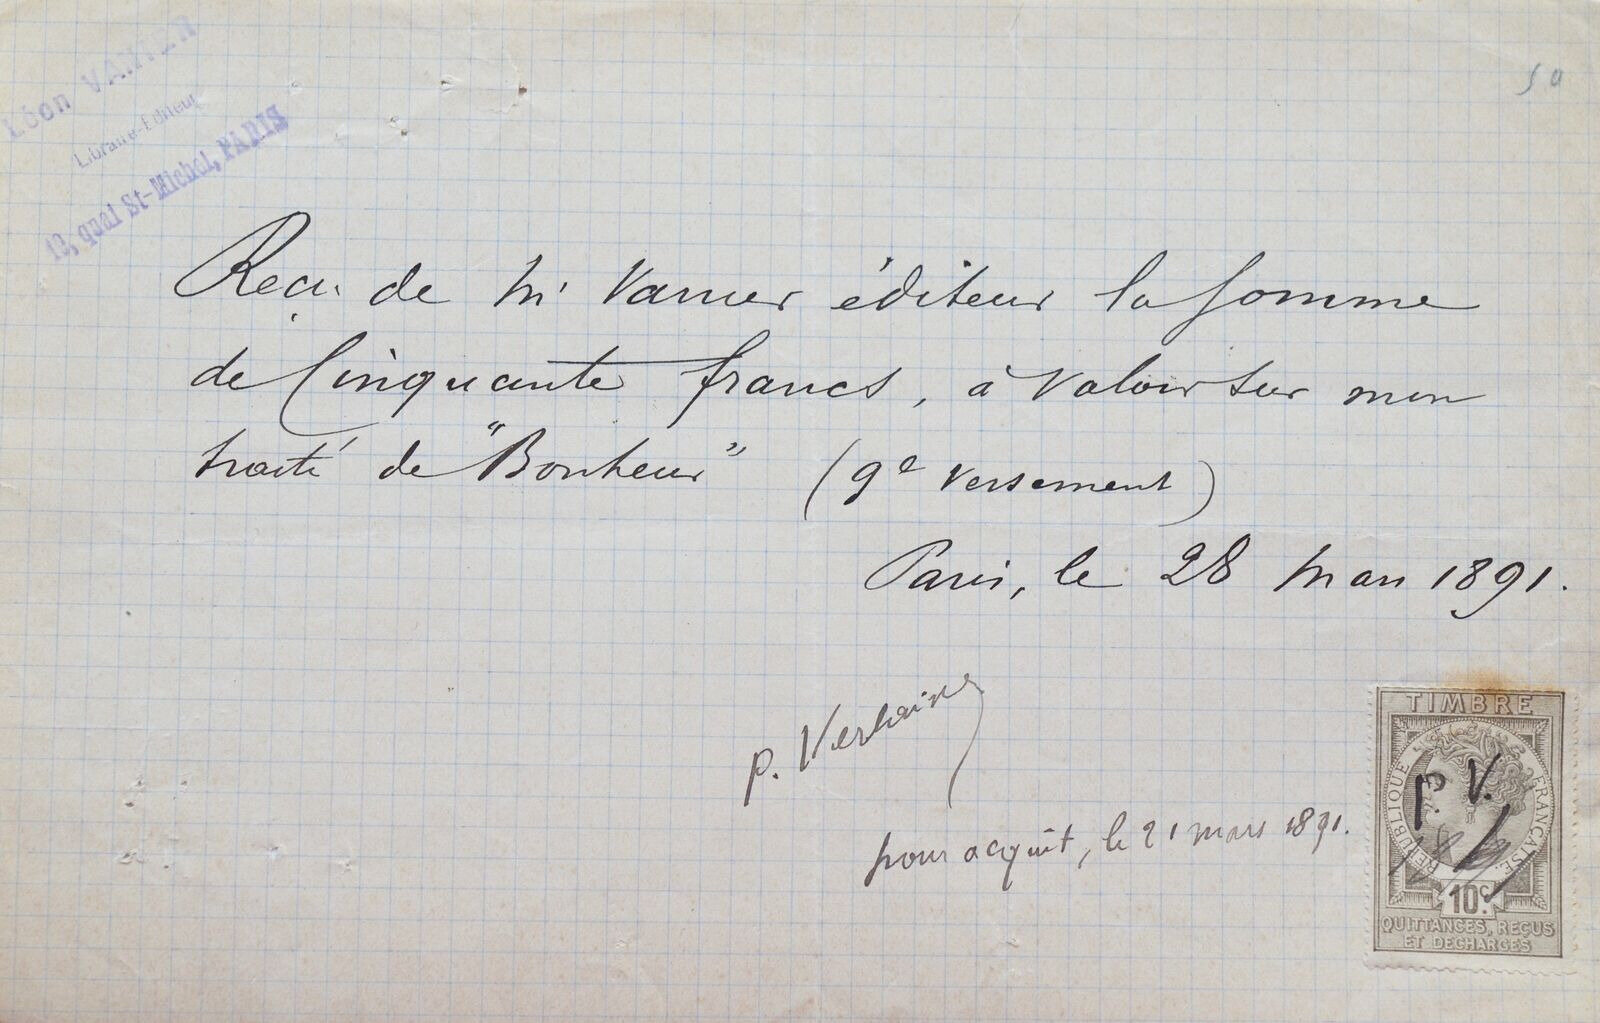 Léon VANIER
Libraire-Editeur
19, quai St-Michel, PARIS
50
Reçu de Mr Vanier éditeur la somme
de Cinquante francs, à valoir sur mon
traité de "Bonheur" (9e versement)
Paris, le 28 Mars 1891.
P. Verlaine
pour acquit, le 21 mars 1891.
TIMBRE
RÉPUBLIQUE FRANÇAISE
P. V.
10c.
QUITTANCES, REÇUS
ET DECHARGES